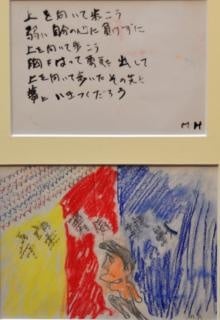 上を向いて歩こう
弱い自分の心に負けずに
上を向いて歩こう
胸をはって勇気を出して
上を向いて歩いたその先と
夢にいきつくだろう
M H